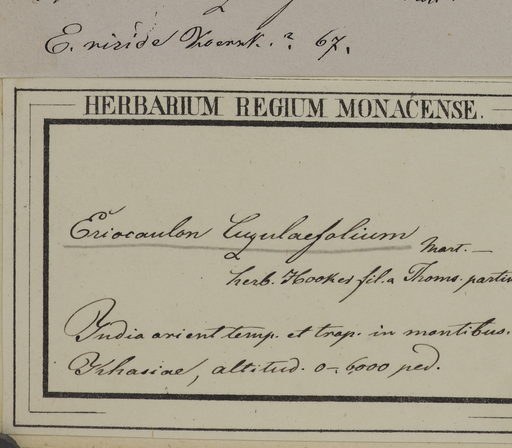 E. viride Koern. ? 67.
HERBARIUM REGIUM MONACENSE.
Eriocaulon Luzulaefolium Mart. —
herb. Hooker fil. & Thoms. partim
India orient temp. et trop. in montibus.
Khasiae, altitud. 0-6000 ped.